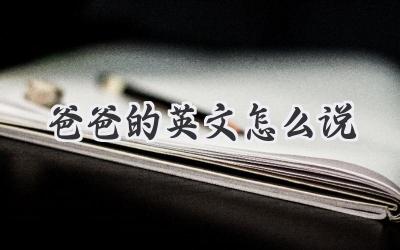 爸爸的英文怎么说